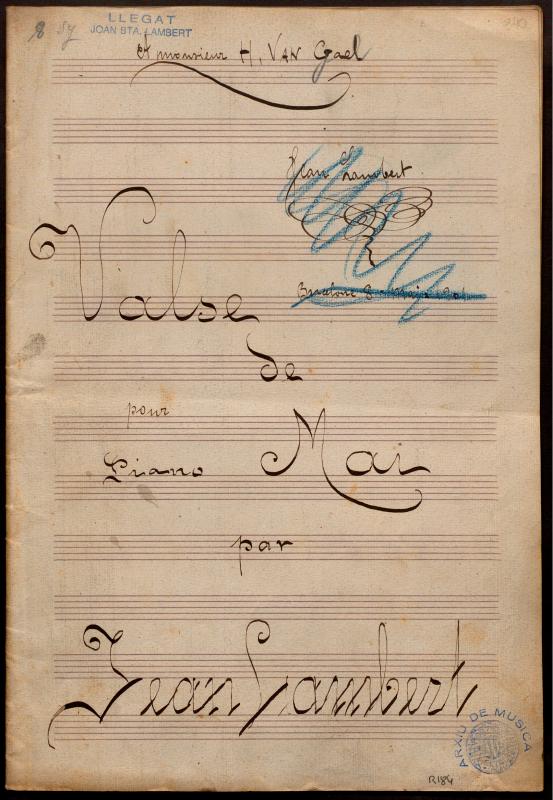 LLEGAT
JOAN BTA. LAMBERT
A monsieur H. VAN Gael
Jean Lambert
Barcelone 8
Valse
de
pour
Piano Mai
par
Jean Lambert
ARXIU DE MUSICA
R184